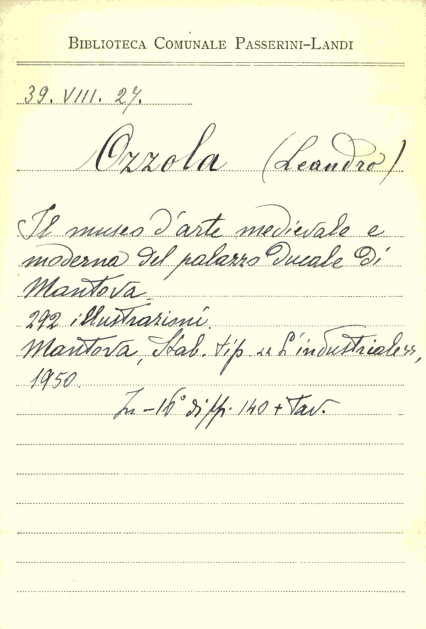 BIBLIOTECA COMUNALE PASSERINI-LANDI
39. VIII. 27.
Ozzola (Leandro)
Il museo d'arte medievale e
moderna del palazzo Ducale di
Mantova.
292 illustrazioni.
Mantova, Stab. tip «L'industriale»,
1950.
In-16° di pp. 140 + tav.